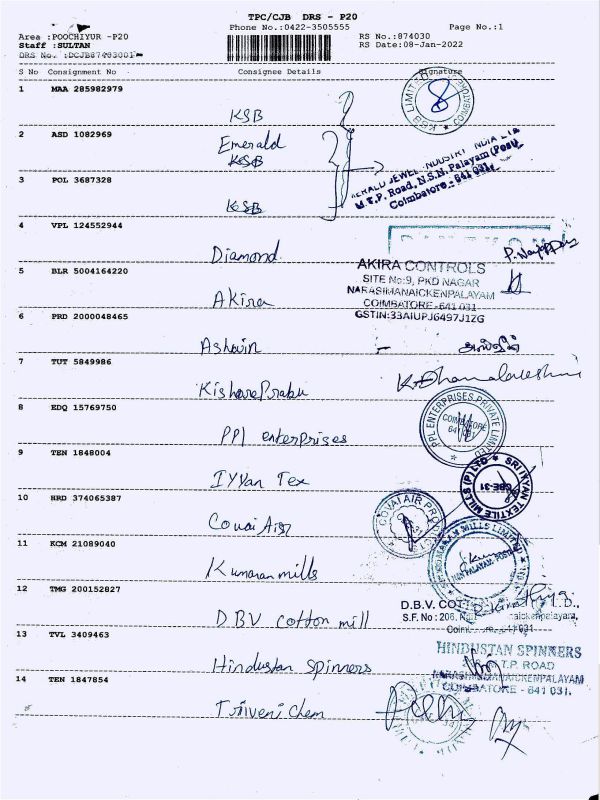 TPC/CJB DRS - P20
Phone No.:0422-3505555
Page No.:1
Area :POOCHIYUR -P20
Staff :SULTAN
DRS No. :DCJB87403001
RS No.:874030
RS Date:08-Jan-2022
S No Consignment No Consignee Details Signature
1 MAA 285982979
KSB
KSB LIMITED COIMBATORE
8
2 ASD 1082969
Emerald
KSB
EMERALD JEWEL INDUSTRY INDIA LTD
M.T.P. Road, N.S.N. Palayam (Post)
Coimbatore - 641 031.
3 POL 3687328
KSB
4 VPL 124552944
Diamond
5 BLR 5004164220
Akira
AKIRA CONTROLS
SITE No:9, PKD NAGAR
NARASIMANAICKENPALAYAM
COIMBATORE-641 031
GSTIN:33AIUPJ6497J1ZG
6 PRD 2000048465
Ashwin
7 TUT 5849986
KishorePrabu
K. Dhanalakshmi
8 EDQ 15769750
PPI enterprises
PPL ENTERPRISES PRIVATE LIMITED
COIMBATORE
641 031
9 TEN 1848004
IYYan Tex
SRI IYYAN TEXTILE MILLS (P) LTD
CBE-31
10 HRD 374065387
Covai Air
COVAI AIR PRODUCTS
11 KCM 21089040
Kumaran mills
KUMARAN MILLS LIMITED
NSN PALAYAM POST
12 TMG 200152827
DBV cotton mill
D.B.V. COT
S.F. No : 206,
aickenpalayam,
13 TVL 3409463
Hindustan Spinners
HINDUSTAN SPINNERS
T.P. ROAD
NARASIMANAICKENPALAYAM
COIMBATORE - 641 031.
14 TEN 1847854
Triveni Chem